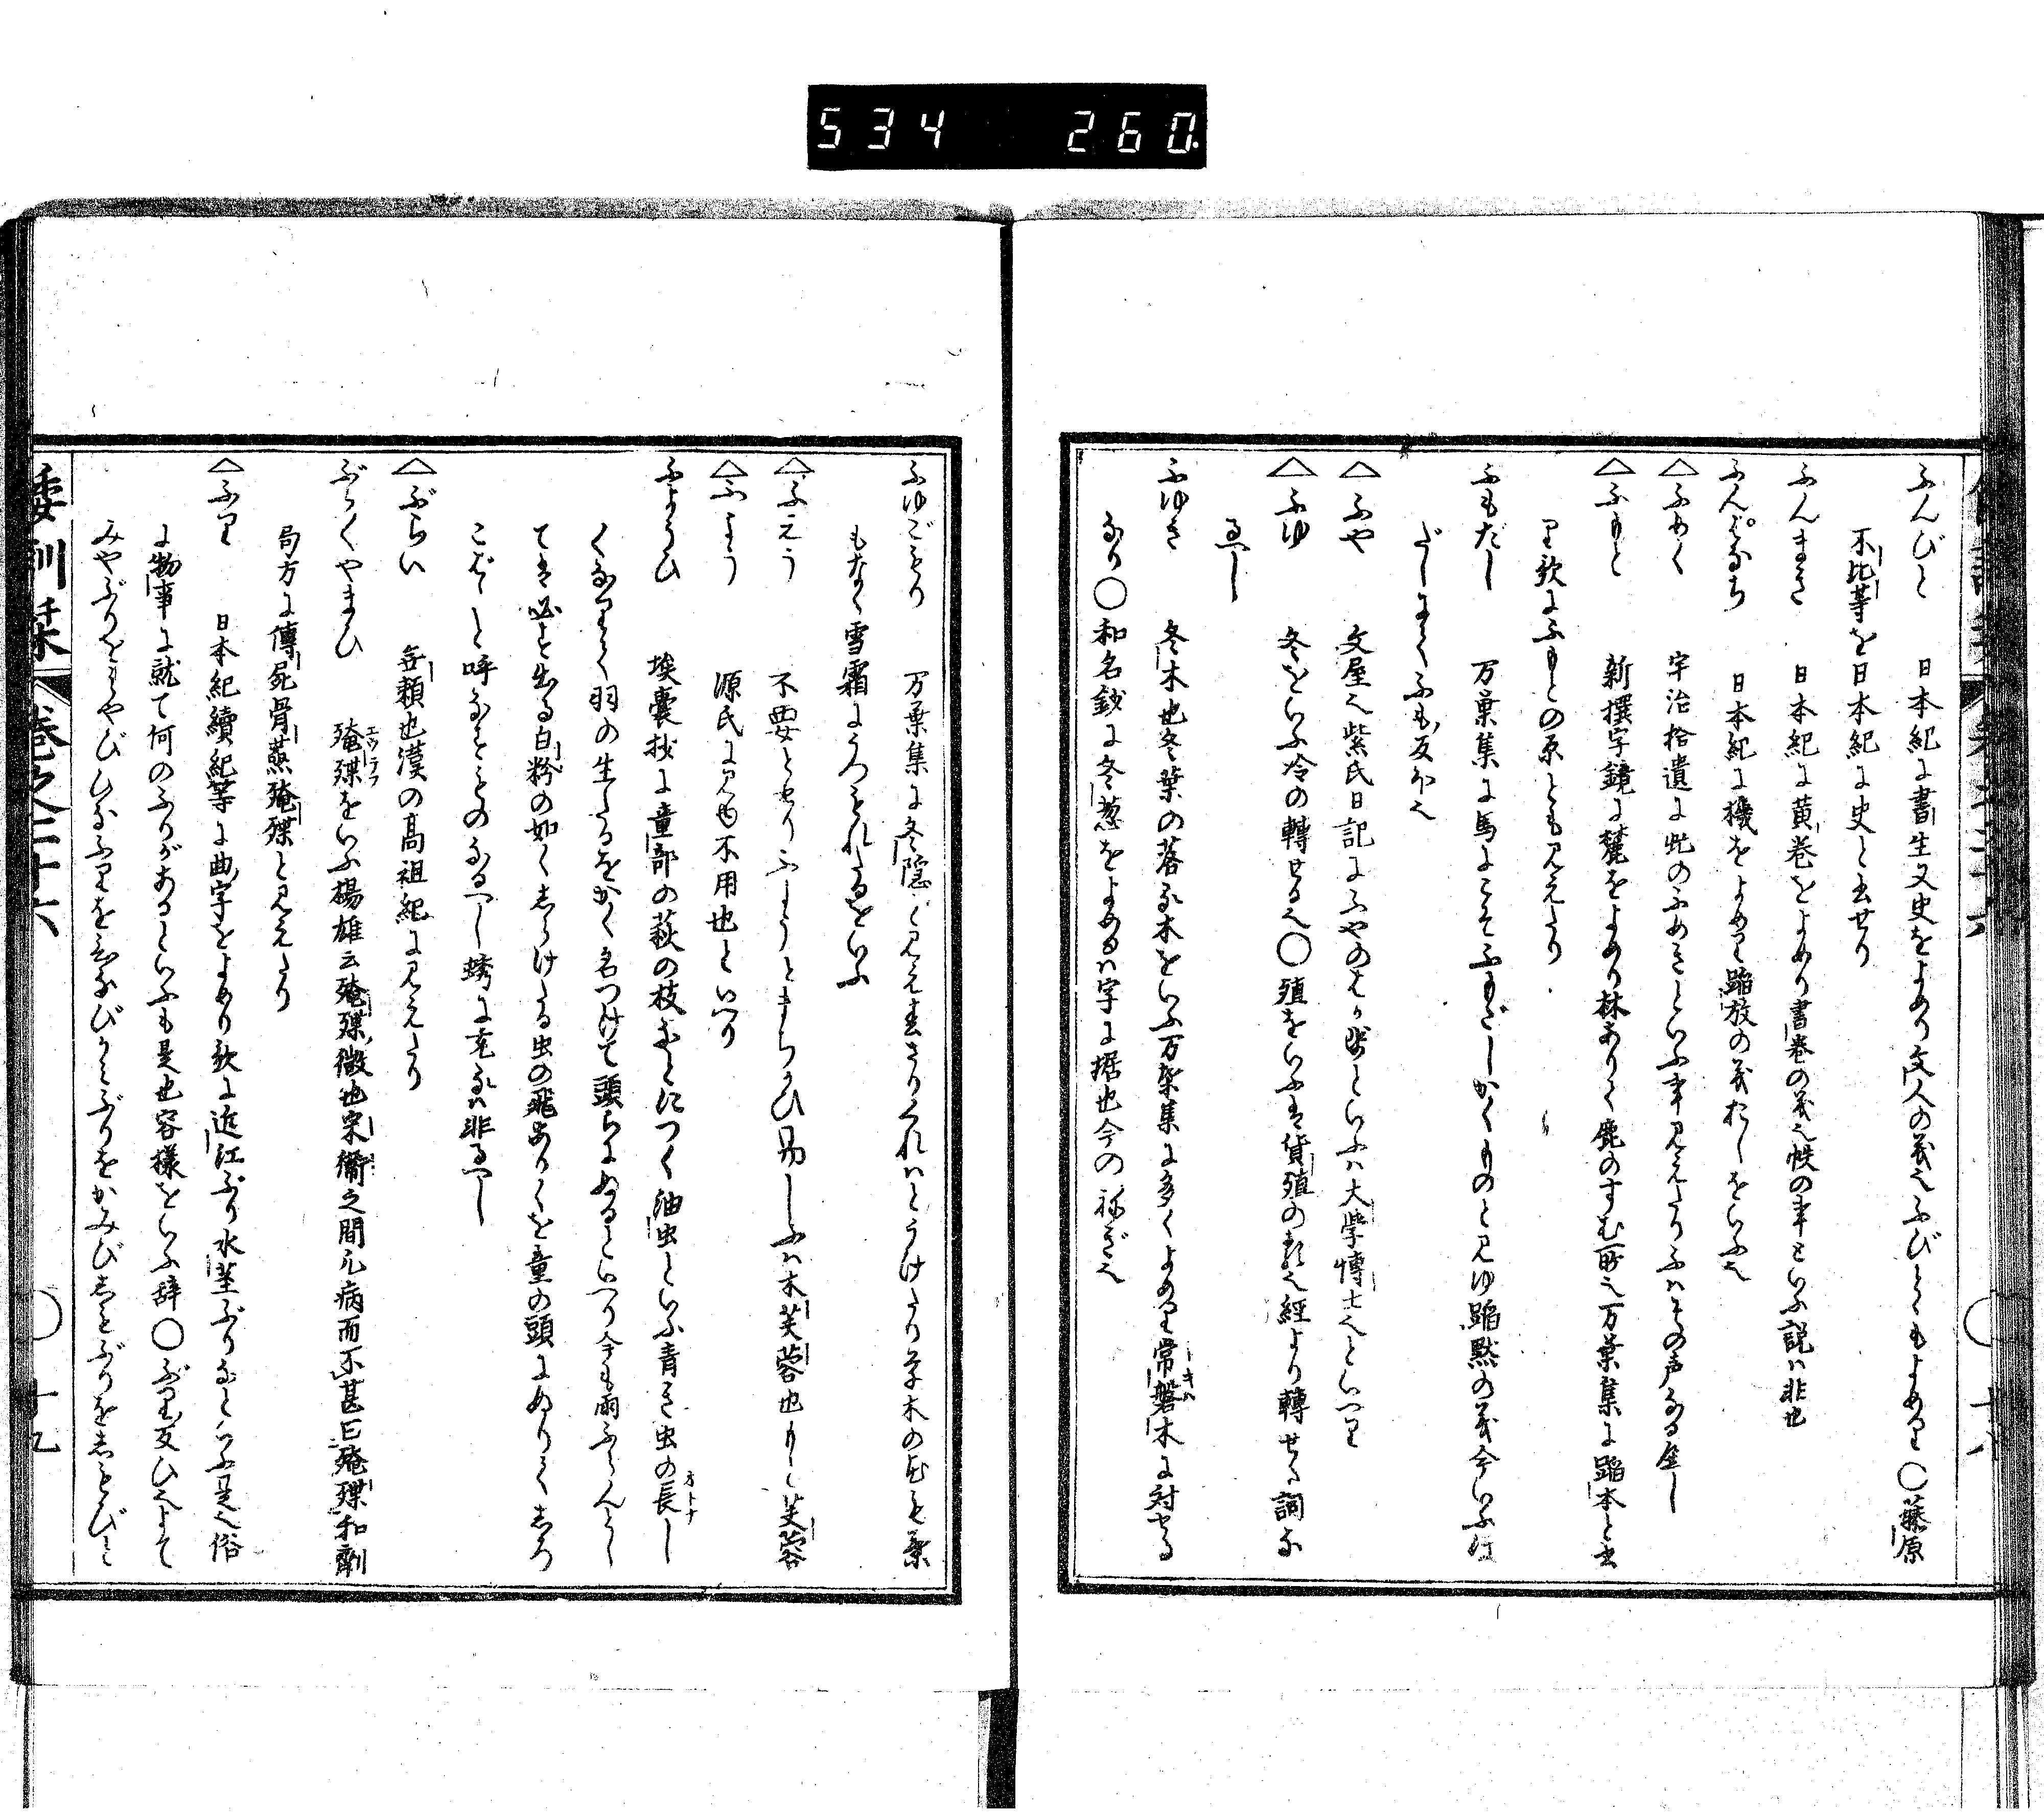 534 260
ふんびと 日本紀に書生又史をよめり文人の義也ふびとゝもよめり○藤原
不比等を日本紀に史と書せり
ふんまき 日本紀に黄巻をよめり書巻の義也帙の事といふ説ハ非也
ふんはなち 日本紀に機をよめり蹈放の義おしをいふ也
△ふめく 宇治拾遺に虻のふめきといふ事見えたりふハその声なるへし
△ふもと 新撰字鏡に麓をよめり林ありて鹿のすむ所也万葉集に蹈本と書
り歌にふもとの原とも見えたり
ふもだし 万葉集に馬にこそふもだしかくものと見ゆ蹈黙の義今いふほ
だしにてふも反ほ也
△ふや 文屋也紫氏日記にふやのはかせといふハ大学博士也といへり
△ふゆ 冬をいふ冷の轉せる也○殖をいふは貨殖の義也經より轉せる詞な
るへし
ふゆき 冬木也冬葉の落る木をいふ万葉集に多くよめり常磐木に対せる
なり○和名鈔に冬葱をよめるハ字に据也今のねぎ也
ふゆごもり 万葉集に冬隠と見え春さりくれハとうけたり草木の花も葉
もなく雪霜にうつもれたるをいふ
△ふえう 不要とせりふようとまちかひ易しふハ木芙蓉也もと芙蓉
△ふよう 源氏に見ゆ不用也といへり
ふようひ 埃嚢抄に童部の萩の枝なとにつく油虫といふ青き虫の長し
くなりて羽の生たるをかく名つけて頭らにぬるといへり今も雨ふらんとし
ては必す出る白粉の如くしらけたる虫の飛ありくを童の頭にぬりてしろ
こばゝと呼なもとのなるへし蜉に充るハ非るへし
△ぶらい 無頼也漢の高祖紀に見えたり
ぶらくやまひ 殗殜をいふ楊雄云殗殜微也宋衞之間凡病而不甚曰殗殜和劑
局方に傳屍骨蒸殗殜と見えたり
△ふり 日本紀續紀等に曲字をよめり歌に近江ぶり水茎ぶりなといふ是也俗
に物事に就て何のふりがあるといふも是也容様をいふ辞○ぶり反ひ也よて
みやぶりをみやびひなふりをひなびかみぶりをかみびしもぶりをしもびと
倭訓栞 巻之二十六 ○十九